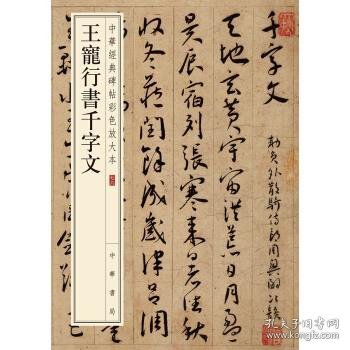 中華經典碑帖彩色放大本
王寵行書千字文
中華書局
千字文
勅員外散騎侍郎周興嗣次韻
天地玄黃宇宙洪荒日月盈
昃辰宿列張寒来暑往秋
收冬藏閏餘成歲律呂調
孔夫子旧书网